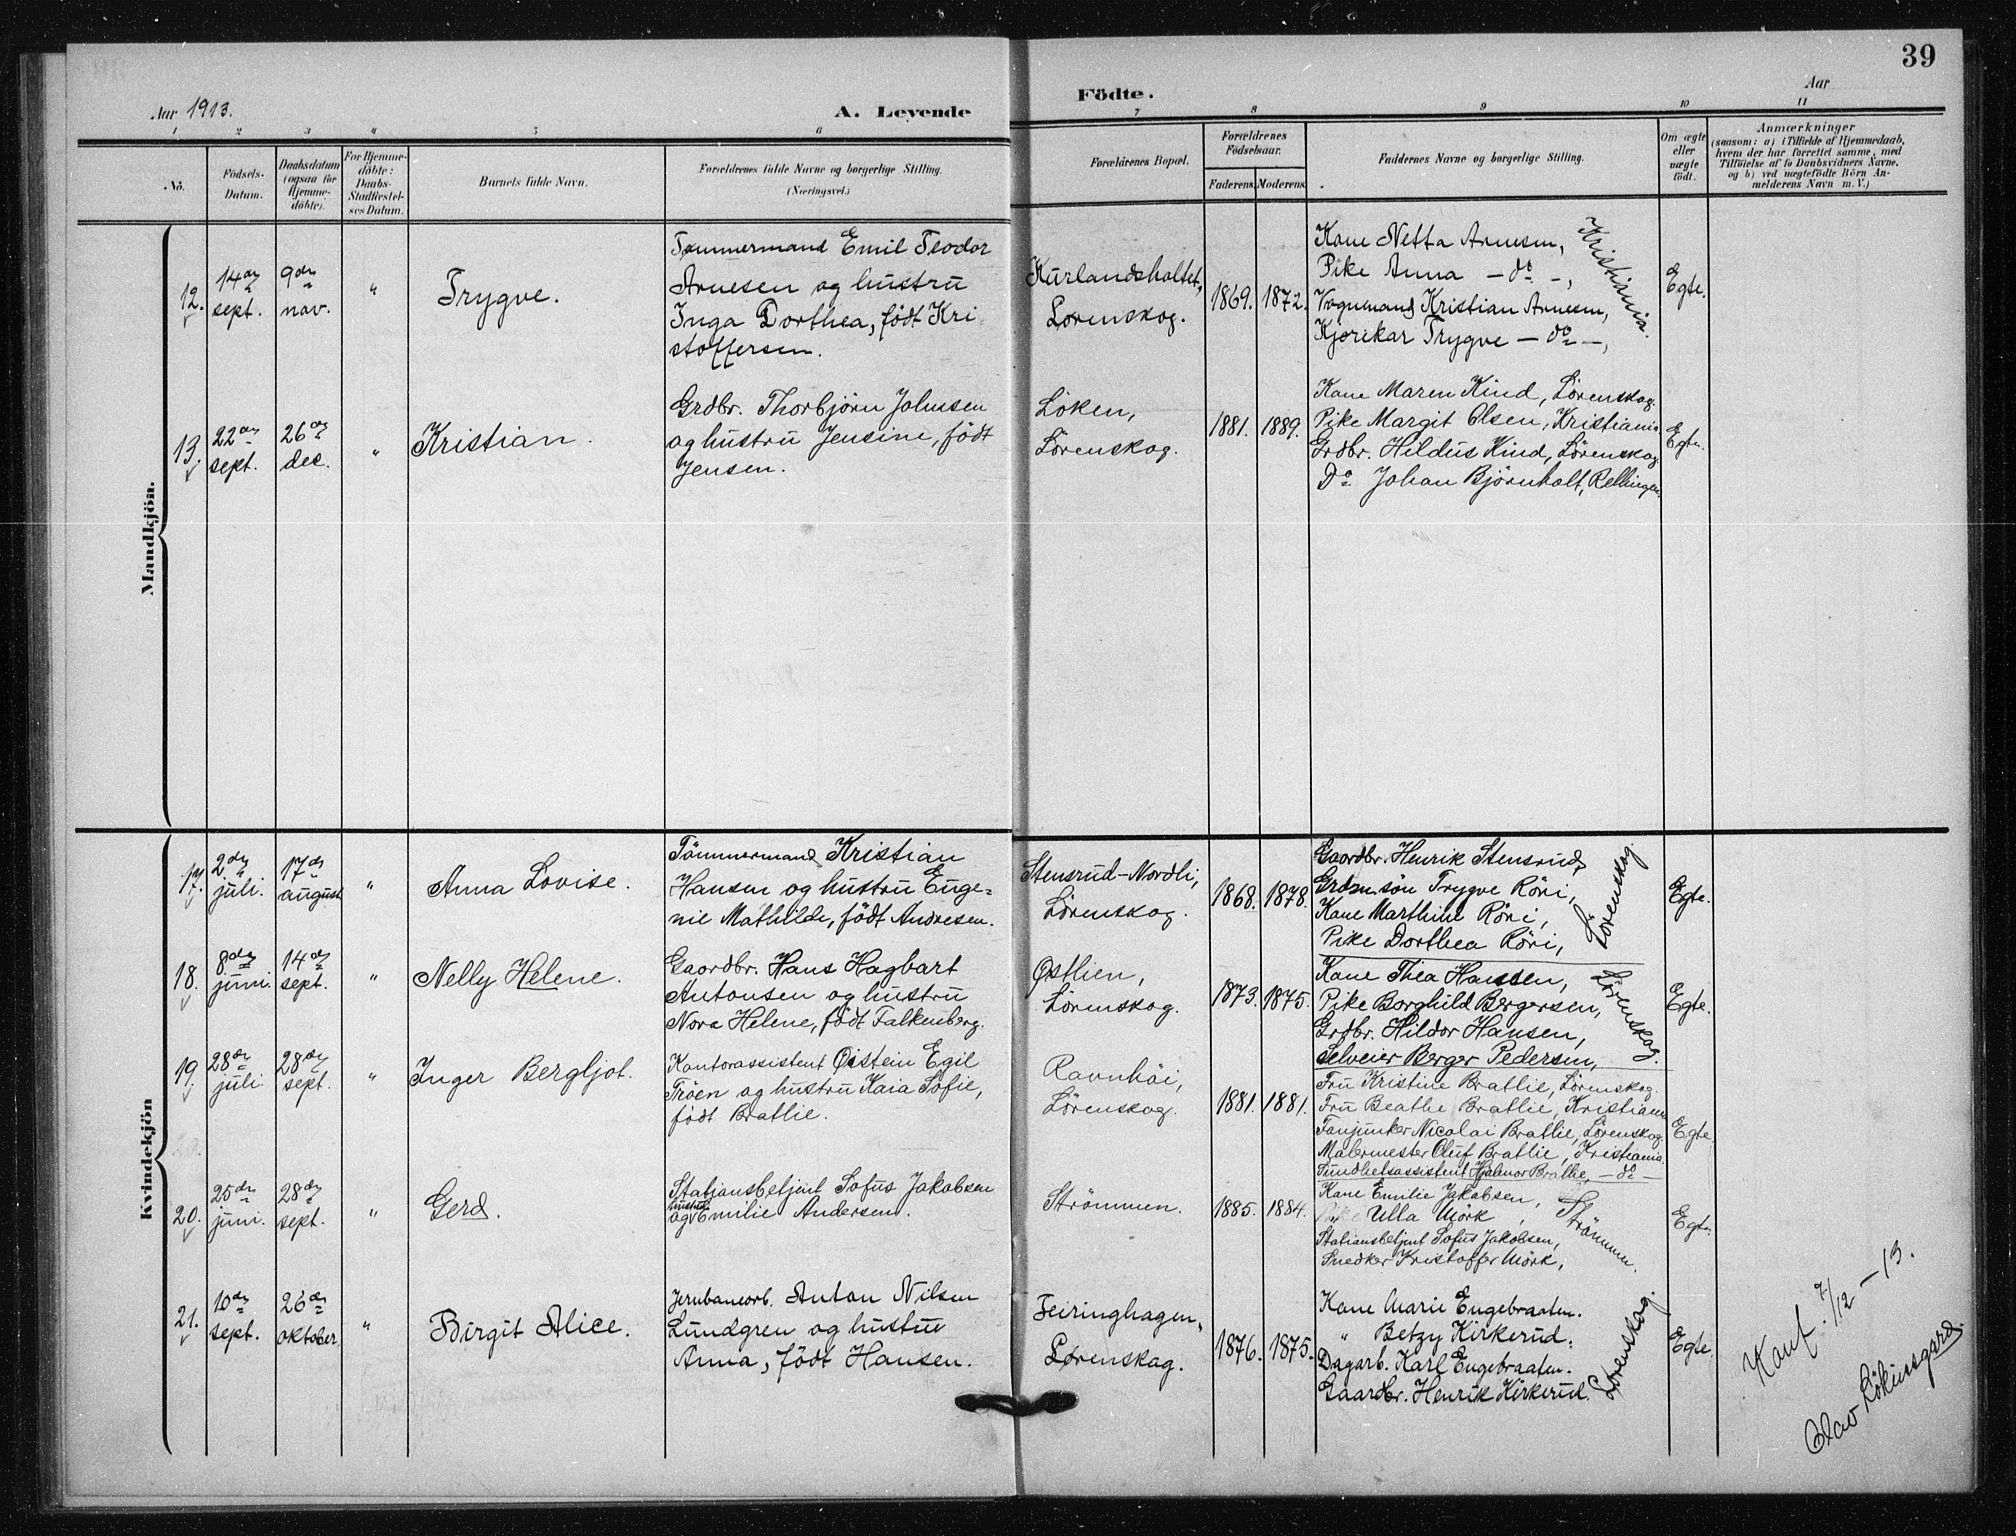 39
Aar 1913.
A. Levende
Födte.
Aar
1 2 3 4 5 6 7 8 9 10 11
No.
Födsels-
Datum.
Daabsdatum
(ogsaa for
Hjemme-
döbte).
For Hjemme-
döbte:
Daabs-
Stadfæstel-
ses Datum.
Barnets fulde Navn.
Forældrenes fulde Navne og borgerlige Stilling.
(Næringsvei.)
Forældrenes Bopæl.
Forældrenes
Födselsaar.
Faderens. Moderens.
Faddernes Navne og borgerlige Stilling.
Om ægte
eller
uægte
født.
Anmærkninger
(saasom: a) i Tilfælde af Hjemmedaab,
hvem der har forrettet samme, med
Tilföielse af to Daabsvidners Navne,
og b) ved uægtefödte Börn An-
melderens Navn m. V.)
Mandkjön.
12.
14de
sept.
9de
nov.
"
Trygve.
Tømmermand Emil Teodor
Arnesen og hustru
Inga Dorthea, födt Kri
stoffersen.
Kurlandsholtet,
Lørenskog.
1869. 1872.
Kone Netta Arnesen,
Pike Anna — do —,
Vognmand Kristian Arnesen,
Kjørekar Trygve — do —,
Kristiania.
Egte.
13.
22de
sept.
26de
dec.
"
Kristian.
Grdbr. Thorbjörn Johnsen
og hustru Jensine, födt
Jensen.
Löken,
Lörenskog.
1881. 1889.
Kone Maren Kind, Lörenskog.
Pike Margit Olsen, Kristiania
Grdbr. Hildus Kind, Lörenskog
Do Johan Björnholt, Rellingen,
Egte.
Kvindekjön
17.
2den
juli.
17de
august
"
Anna Lovise.
Tömmermand Kristian
Hansen og hustru Euge=
nie Mathilde, födt Andresen.
Stensrud-Nordli,
Lörenskog.
1868. 1878.
Gaardbr. Henrik Stensrud,
Grdm.søn Trygve Röri,
Kone Marthine Röri,
Pike Dorthea Röri,
Lørenskog
Egte.
18.
8de
juni.
14de
sept.
"
Nelly Helene.
Gaardbr. Hans Hagbart
Antonsen og hustru
Nora Helene, födt Falkenberg.
Østlien,
Lörenskog.
1873. 1875.
Kone Thea Hansen,
Pike Borghild Bergersen,
Grdbr. Hildor Hansen,
Selveier Berger Pedersen,
Lörenskog.
Egte.
19.
28de
juli.
28de
sept.
"
Inger Bergljot.
Kontorassistent Øistein Egil
Tröen og hustru Kaia Sofie,
født Bratlie.
Ravnhöi,
Lörenskog.
1881. 1881.
Fru Kristine Bratlie, Lörenskog.
Fru Beathe Bratlie, Kristiania
Fanjunker Nicolai Bratlie, Lörenskog.
Malermester Oluf Bratlie, Kristiania.
Sundhetsassistent Hjalmar Bratlie, — do —
Egte,
20.
25de
juni.
28de
sept.
"
Gerd.
Stationsbetjent Sofus Jakobsen
og hustru Emilie Andersen.
Strömmen.
1885. 1884.
Kone Emilie Jakobsen,
Pike Ulla Mörk,
Stationsbetjent Sofus Jakobsen,
Snedker Kristoffer Mörk,
Strömmen.
Egte.
21.
10de
sept.
26de
oktober
"
Birgit Alice.
Jernbanearb. Anton Nilsen
Lundgren og hustru
Anna, födt Hansen.
Feiringhagen,
Lørenskog.
1876. 1875.
Kone Marie Engebraaten.
" Betzy Kirkerud.
Dagarb. Karl Engebraaten.
Gaardbr. Henrik Kirkerud.
Lørenskog.
Egte.
Konf. 7/12 — 13.
Olav Lökensgard.